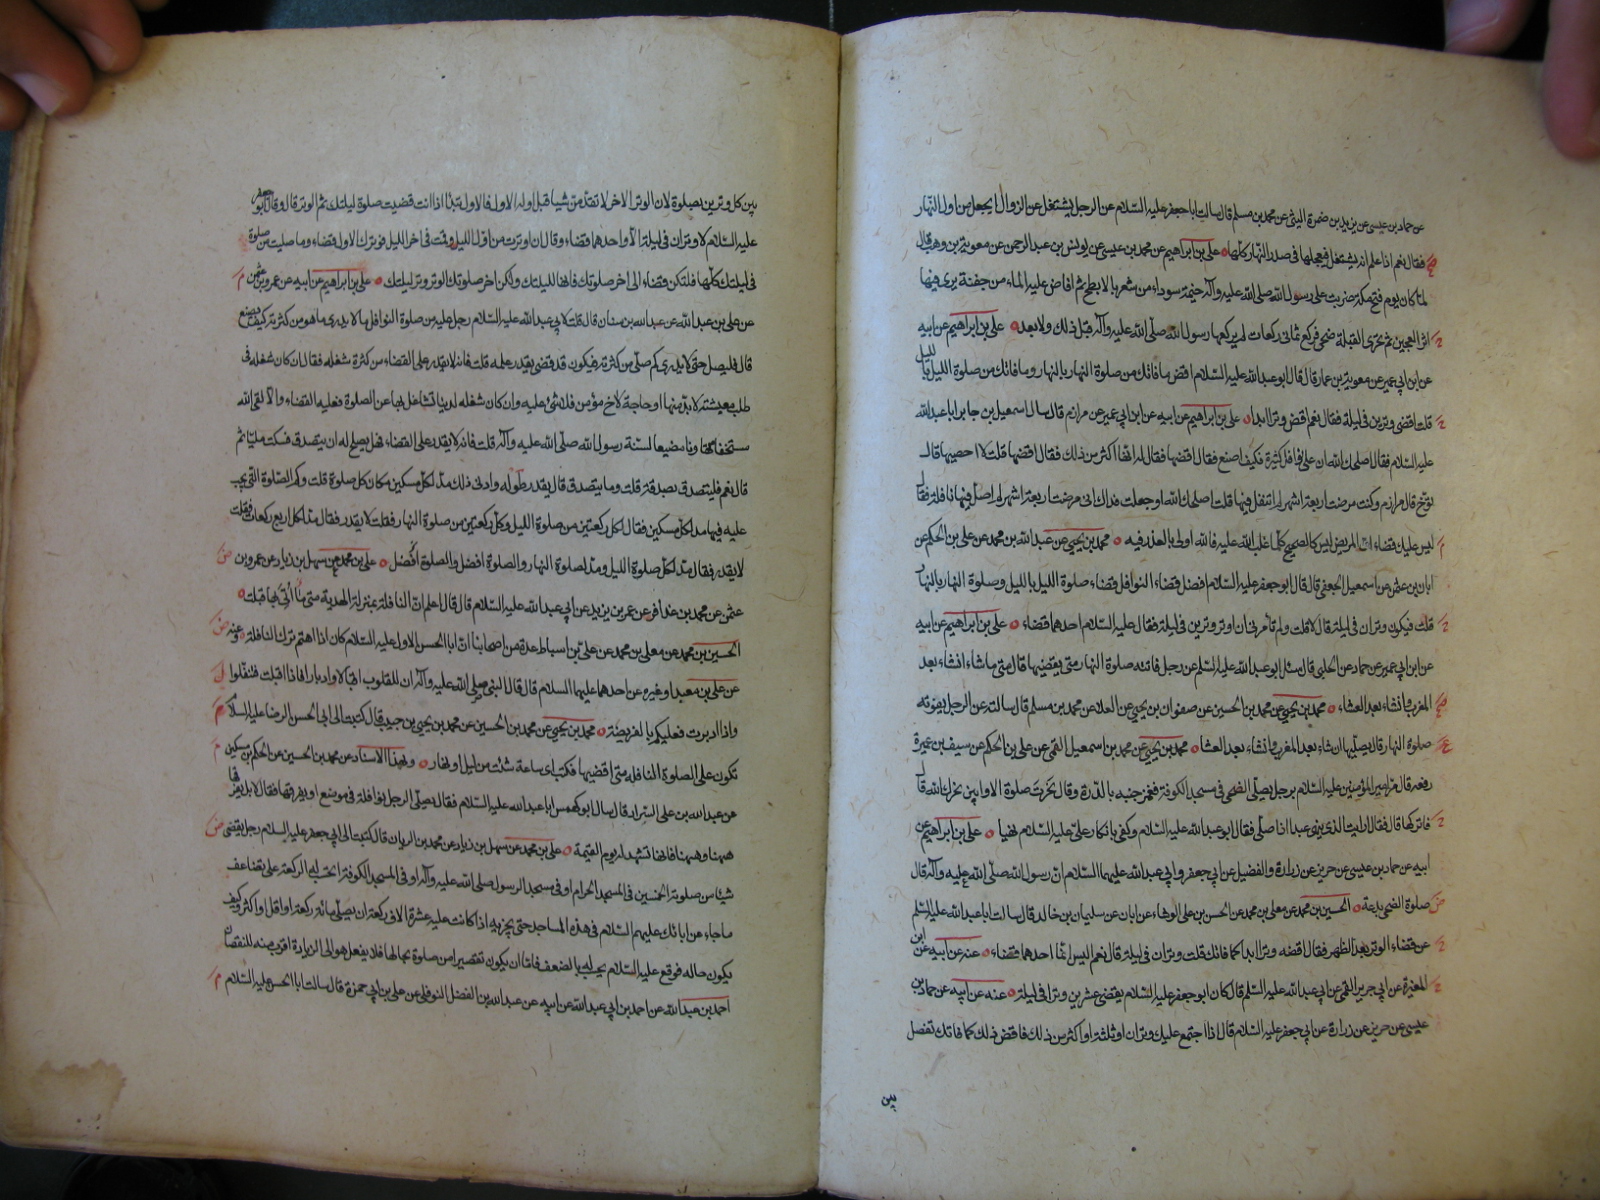 عن حماد بن عيسى عن يزيد بن ضمرة الليثى عن محمد بن مسلم قال سالت ابا جعفر عليه السلام عن الرجل يشتغل عن الزوال ايجعل من اول النهار
فقال نعم اذا علم انه يشتغل فيعجلها فى صدر النهار كلها علي بن ابراهيم عن محمد بن عيسى عن يونس بن عبد الرحمن عن معوية بن وهب قال
لما كان يوم فتح مكة ضربت على رسول الله صلى الله عليه وآله خيمة سوداء من شعر بالابطح ثم افاض عليه الماء من جفنة يرى فيها
اثر العجين ثم تحرى القبلة ضحى فركع ثمانى ركعات لم يركعها رسول الله صلى الله عليه وآله قبل ذلك ولا بعد علي بن ابراهيم عن ابيه
عن ابن ابي عمير عن معوية بن عمار قال قال ابو عبد الله عليه السلام اقض ما فاتك من صلوة النهار بالنهار وما فاتك من صلوة الليل بالليل
قلت اقضى وترين فى ليلة فقال نعم اقض وترا ابدا علي بن ابراهيم عن ابيه عن ابن ابي عمير عن مرازم قال سال اسمعيل بن جابر ابا عبد الله
عليه السلام فقال اصلحك الله ان علي نوافل كثيرة فكيف اصنع فقال اقضها فقال له انها اكثر من ذلك فقال اقضها قلت لا احصيها قال
توخ قال مرازم وكنت مرضت اربعة اشهر لم اتنفل فيها قلت اصلحك الله او جعلت فداك انى مرضت اربعة اشهر لم اصل فيها نافلة فقال
ليس عليك قضاء ان المريض ليس كالصحيح كلما غلب الله عليه فالله اولى بالعذر فيه محمد بن يحيى عن عبد الله بن محمد عن علي بن الحكم عن
ابان بن عثمن عن اسمعيل الجعفى قال قال ابو جعفر عليه السلام افضل قضاء النوافل قضاء صلوة الليل بالليل وصلوة النهار بالنهار
قلت فيكون وتران فى ليلة قال لا قلت ولم تأمرنى ان اوتر وترين فى ليلة فقال عليه السلام احدهما قضاء علي بن ابراهيم عن ابيه
عن ابن ابي عمير عن حماد عن الحلبى قال سئل ابو عبد الله عليه السلم عن رجل فاتته صلوة النهار متى يقضيها قال متى ما شاء ان شاء بعد
المغرب وان شاء بعد العشاء محمد بن يحيى عن محمد بن الحسين عن صفوان بن يحيى عن العلا عن محمد بن مسلم قال سالته عن الرجل يفوته
صلوة النهار قال يصليها ان شاء بعد المغرب وان شاء بعد العشا محمد بن يحيى عن محمد بن اسمعيل القمى عن علي بن الحكم عن سيف بن عميرة
رفعه قال مر امير المؤمنين عليه السلام برجل يصلى الضحى فى مسجد الكوفة فغمز جنبه بالدرة وقال نحرت صلوة الاوابين نحرك الله قال
فاتركها قال فقال ارايت الذى ينهى عبدا اذا صلى فقال ابو عبد الله عليه السلام وكفى بانكار علي عليه السلام نهيا علي بن ابراهيم عن
ابيه عن حماد بن عيسى عن حريز عن زرارة والفضيل عن ابي جعفر وابي عبد الله عليهما السلام ان رسول الله صلى الله عليه وآله قال
صلوة الضحى بدعة الحسين بن محمد عن معلى بن محمد عن الحسن بن على الوشاء عن ابان عن سليمان بن خالد قال سالت ابا عبد الله عليه السلم
عن قضاء الوتر بعد الظهر فقال اقضه وترا ابدا كما فاتك قلت وتران فى ليلة قال نعم اليس انما احدهما قضاء عنه عن ابيه عن ابن
المغيرة عن ابي جرير القمى عن ابي عبد الله عليه السلم قال كان ابو جعفر عليه السلام يقضى عشرين وترا فى ليلة عنه عن ابيه عن حماد بن
عيسى عن حريز عن زرارة عن ابي جعفر عليه السلام قال اذا اجتمع عليك وتران او ثلثة او اكثر من ذلك فاقض ذلك كما فاتك تفصل
بين
بين كل وترين بصلوة لان الوتر الاخر لا تقدمن شيا قبل اوله الاول فالاول تبدا اذا انت قضيت صلوة ليلتك ثم الوتر قال وقال ابو جعفر
عليه السلام لا وتران فى ليلة الا واحدهما قضاء وقال ان اوترت من اول الليل وقمت فى اخر الليل فوترك الاول قضاء وما صليت من صلوة
فى ليلتك كلها فلتكن قضاء الى اخر صلوتك فانها لليلتك وليكن اخر صلوتك الوتر وتر ليلتك علي بن ابراهيم عن ابيه عن عمرو بن عثمن
عن علي بن عبد الله عن عبد الله بن سنان قال قلت لابي عبد الله عليه السلام رجل عليه من صلوة النوافل ما لا يدرى ما هو من كثرته كيف يصنع
قال فليصل حتى لا يدرى كم صلى من كثرته فيكون قد قضى بقدر علمه قلت فانه لا يقدر على القضاء من كثرة شغله فقال ان كان شغله فى
طلب معيشة لا بد منها او حاجة لاخ مؤمن فلا شئ عليه وان كان شغله لدنيا تشاغل بها عن الصلوة فعليه القضاء والا لقى الله
مستخفا متهاونا مضيعا لسنة رسول الله صلى الله عليه وآله قلت فانه لا يقدر على القضاء فهل يصلح له ان يتصدق فسكت مليا ثم
قال نعم فليتصدق بصدقة قلت وما يتصدق قال بقدر طوله وادنى ذلك مد لكل مسكين مكان كل صلوة قلت وكم الصلوة التى يجب
عليه فيها مد لكل مسكين فقال لكل ركعتين من صلوة الليل وكل ركعتين من صلوة النهار فقلت لا يقدر فقال مد لكل اربع ركعات فقلت
لا يقدر فقال مد لكل صلوة الليل ومد لصلوة النهار والصلوة افضل والصلوة افضل علي بن محمد عن سهل بن زياد عن عمرو بن
عثمن عن محمد بن عذافر عن عمر بن يزيد عن ابي عبد الله عليه السلام قال قال اعلم ان النافلة بمنزلة الهدية متى ما اُتى بها قبلت
الحسين بن محمد عن معلى بن محمد عن علي بن اسباط عن عدة من اصحابنا ان ابا الحسن الاول عليه السلام كان اذا اهتم ترك النافلة وعنه
عن علي بن معبد او غيره عن احدهما عليهما السلام قال قال النبى صلى الله عليه وآله ان للقلوب اقبالا وادبارا فاذا اقبلت فتنفلوا
واذا ادبرت فعليكم بالفريضة محمد بن يحيى عن محمد بن الحسين عن محمد بن يحيى بن حبيب قال كتبت الى ابي الحسن الرضا عليه السلام
تكون علي الصلوة النافلة متى اقضيها فكتب اى ساعة شئت من ليل او نهار وبهذا الاسناد عن محمد بن الحسين عن الحكم بن مسكين
عن عبد الله بن على السراد قال سال ابو كهمس ابا عبد الله عليه السلام فقال يصلى الرجل نوافله فى موضع او يفرقها فقال لا بل يفرقها
ههنا وههنا فانها تشهد له يوم القيمة علي بن محمد عن سهل بن زياد عن محمد بن الريان قال كتبت الى ابي جعفر عليه السلام رجل يقضى
شيئا من صلوته الخمسين فى المسجد الحرام او فى مسجد الرسول صلى الله عليه وآله او فى المسجد الكوفة اتحسب له الركعة على تضاعف
ما جاء عن ابائك عليهم السلام فى هذه المساجد حتى يجزيه اذا كانت عليه عشرة الاف ركعة ان يصلى مائة ركعة او اقل او اكثر وكيف
يكون حاله فوقع عليه السلام يحسب له بالضعف فاما ان يكون تقصيرا من صلوة بحالها فلا يفعل هو الى الزيادة اقرب منه للنقصان
احمد بن عبد الله عن احمد بن ابي عبد الله عن ابيه عن عبد الله بن الفضل النوفلى عن علي بن ابي حمزة قال سالت ابا الحسن عليه السلام